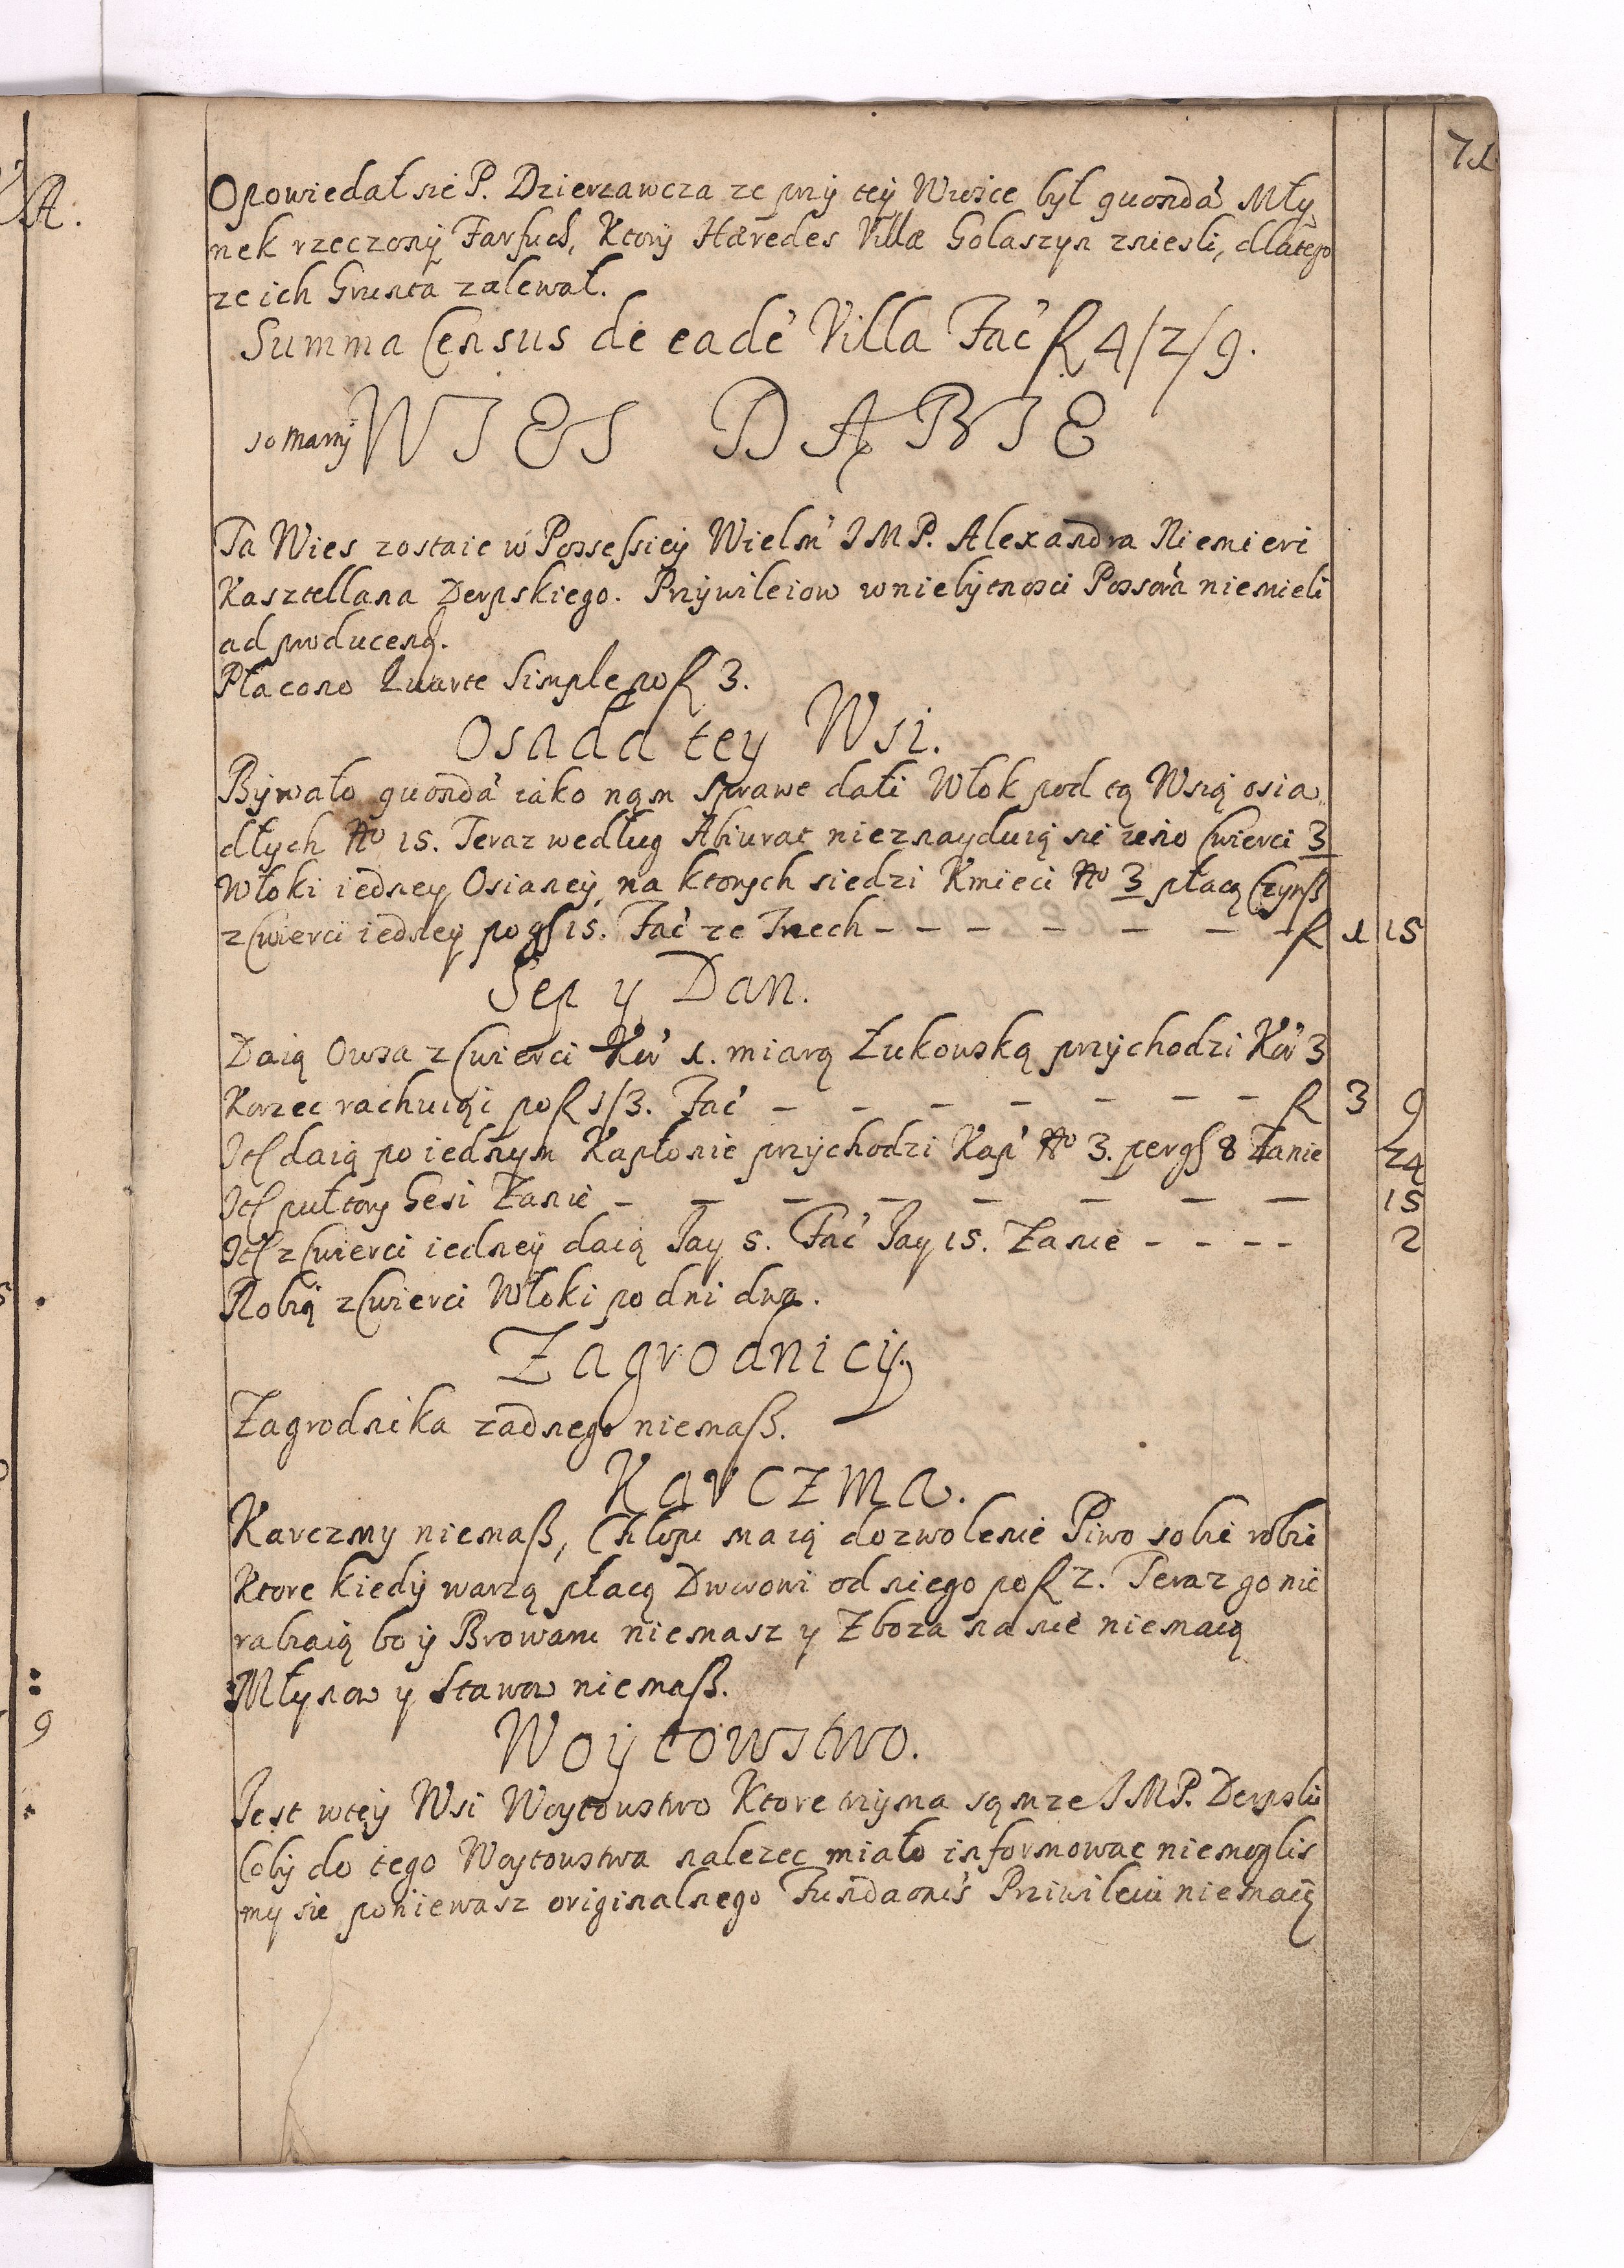 71
Opowiedał sie P. Dzierzawcza ze przy tey Wiosce był quondā Mły
nek rzeczony Farfuch, Ktory Hæredes Villæ Golaszyn zniesli, dlatego
ze ich Grunta zalewał.
Summa Census de eadē Villa Fac̄ fl 4/2/9.
WIES DABIE
Ta Wies zostaie w Possessiey Wielm̄ JMP. Alexandra Niemieri
Kasztellana Derpskiego. Przywileiow w niebytnosci Possōra niemieli
ad producend.
Płacono Kwarte Simple po fl 3.
Osada tey Wsi.
Bywało quondā iako nąm sprawe dali Włok pod tą Wsią osia
dłych Nō 15. Teraz według Abiurat nieznayduią sie ieno Cwierci 3
Włoki iedney Osianey, na ktorych siedzi Kmieci Nō 3 płacą Czynß
z Cwierci iedney po gß 15. Fac̄ ze Trzech - - - - - - - fl 1 15
Sep y Dan.
Daią Owsa z Cwierci Kor̄ 1. miarą Łukowską przychodzi Kor̄ 3
Korzec rachuiąc po fl 1/3. Fac̄ - - - - - - - fl 3 9
Itß daią po iednym Kapłonie przychodzi Kap̄ Nō 3. per gß 8 Zanie 24
Itß pułtory Gesi Zanie - - - - - - - - 15
Itß z Cwierci iedney daią Jay 5. Fac̄ Jay 15. Zanie - - - - 2
Robią z Cwierci Włoki po dni dwa.
Zagrodnicy.
Zagrodnika zadnego niemaß.
Karczma.
Karczmy niemaß, Chłopi maią dozwolenie Piwo sobie robie
Ktore kiedy warzą płacą Dworowi od niego po fl 2. Teraz go nie
rabiaią bo y Browaru niemasz y Zboza na nie niemaią
Młynow y Stawow niemaß.
Woytowstwo.
Jest wtey Wsi Woytowstwo Ktore trzyma sąmze JMP. Derpski
Coby do tego Woytowstwa nalezec miało informowac niemoglis
my sie poniewasz originalnego Fundaōnis Priwileiu niemaią